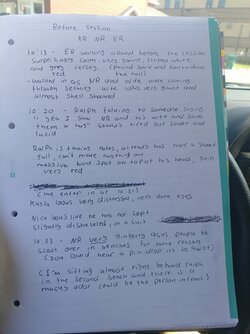 Before session
ER NR ER
10:13 - ER walking around before the session
Surprisingly calm very quiet, striped white
and grey Jersey (pound back and forth
ted the hall)
- walked in as NR and wife were coming
through security wife looks very gaunt and
almost shell shocked
10:20 - Ralph talking to someone saying
"Yea I saw NR and n's wife and gave
them a hug" sounds tired but sober and
lucid
Ralph is taking notes, already has half a sheet
full, can't make out
massive bald spot on top of his head, skin
very red
(we enter in at 10:31)
Kayla looks very distressed, very dark eyes
Nick looks like he has not slept
slightly dishevelled, in a suit
10:33 - NR very gingerly asks people to
scoot over in benches for some reason
(you could hear a pin drop its so quiet)
(I'm sitting almost right behind Ralph
in the second bench and there is a
musty odor could be the person infront)